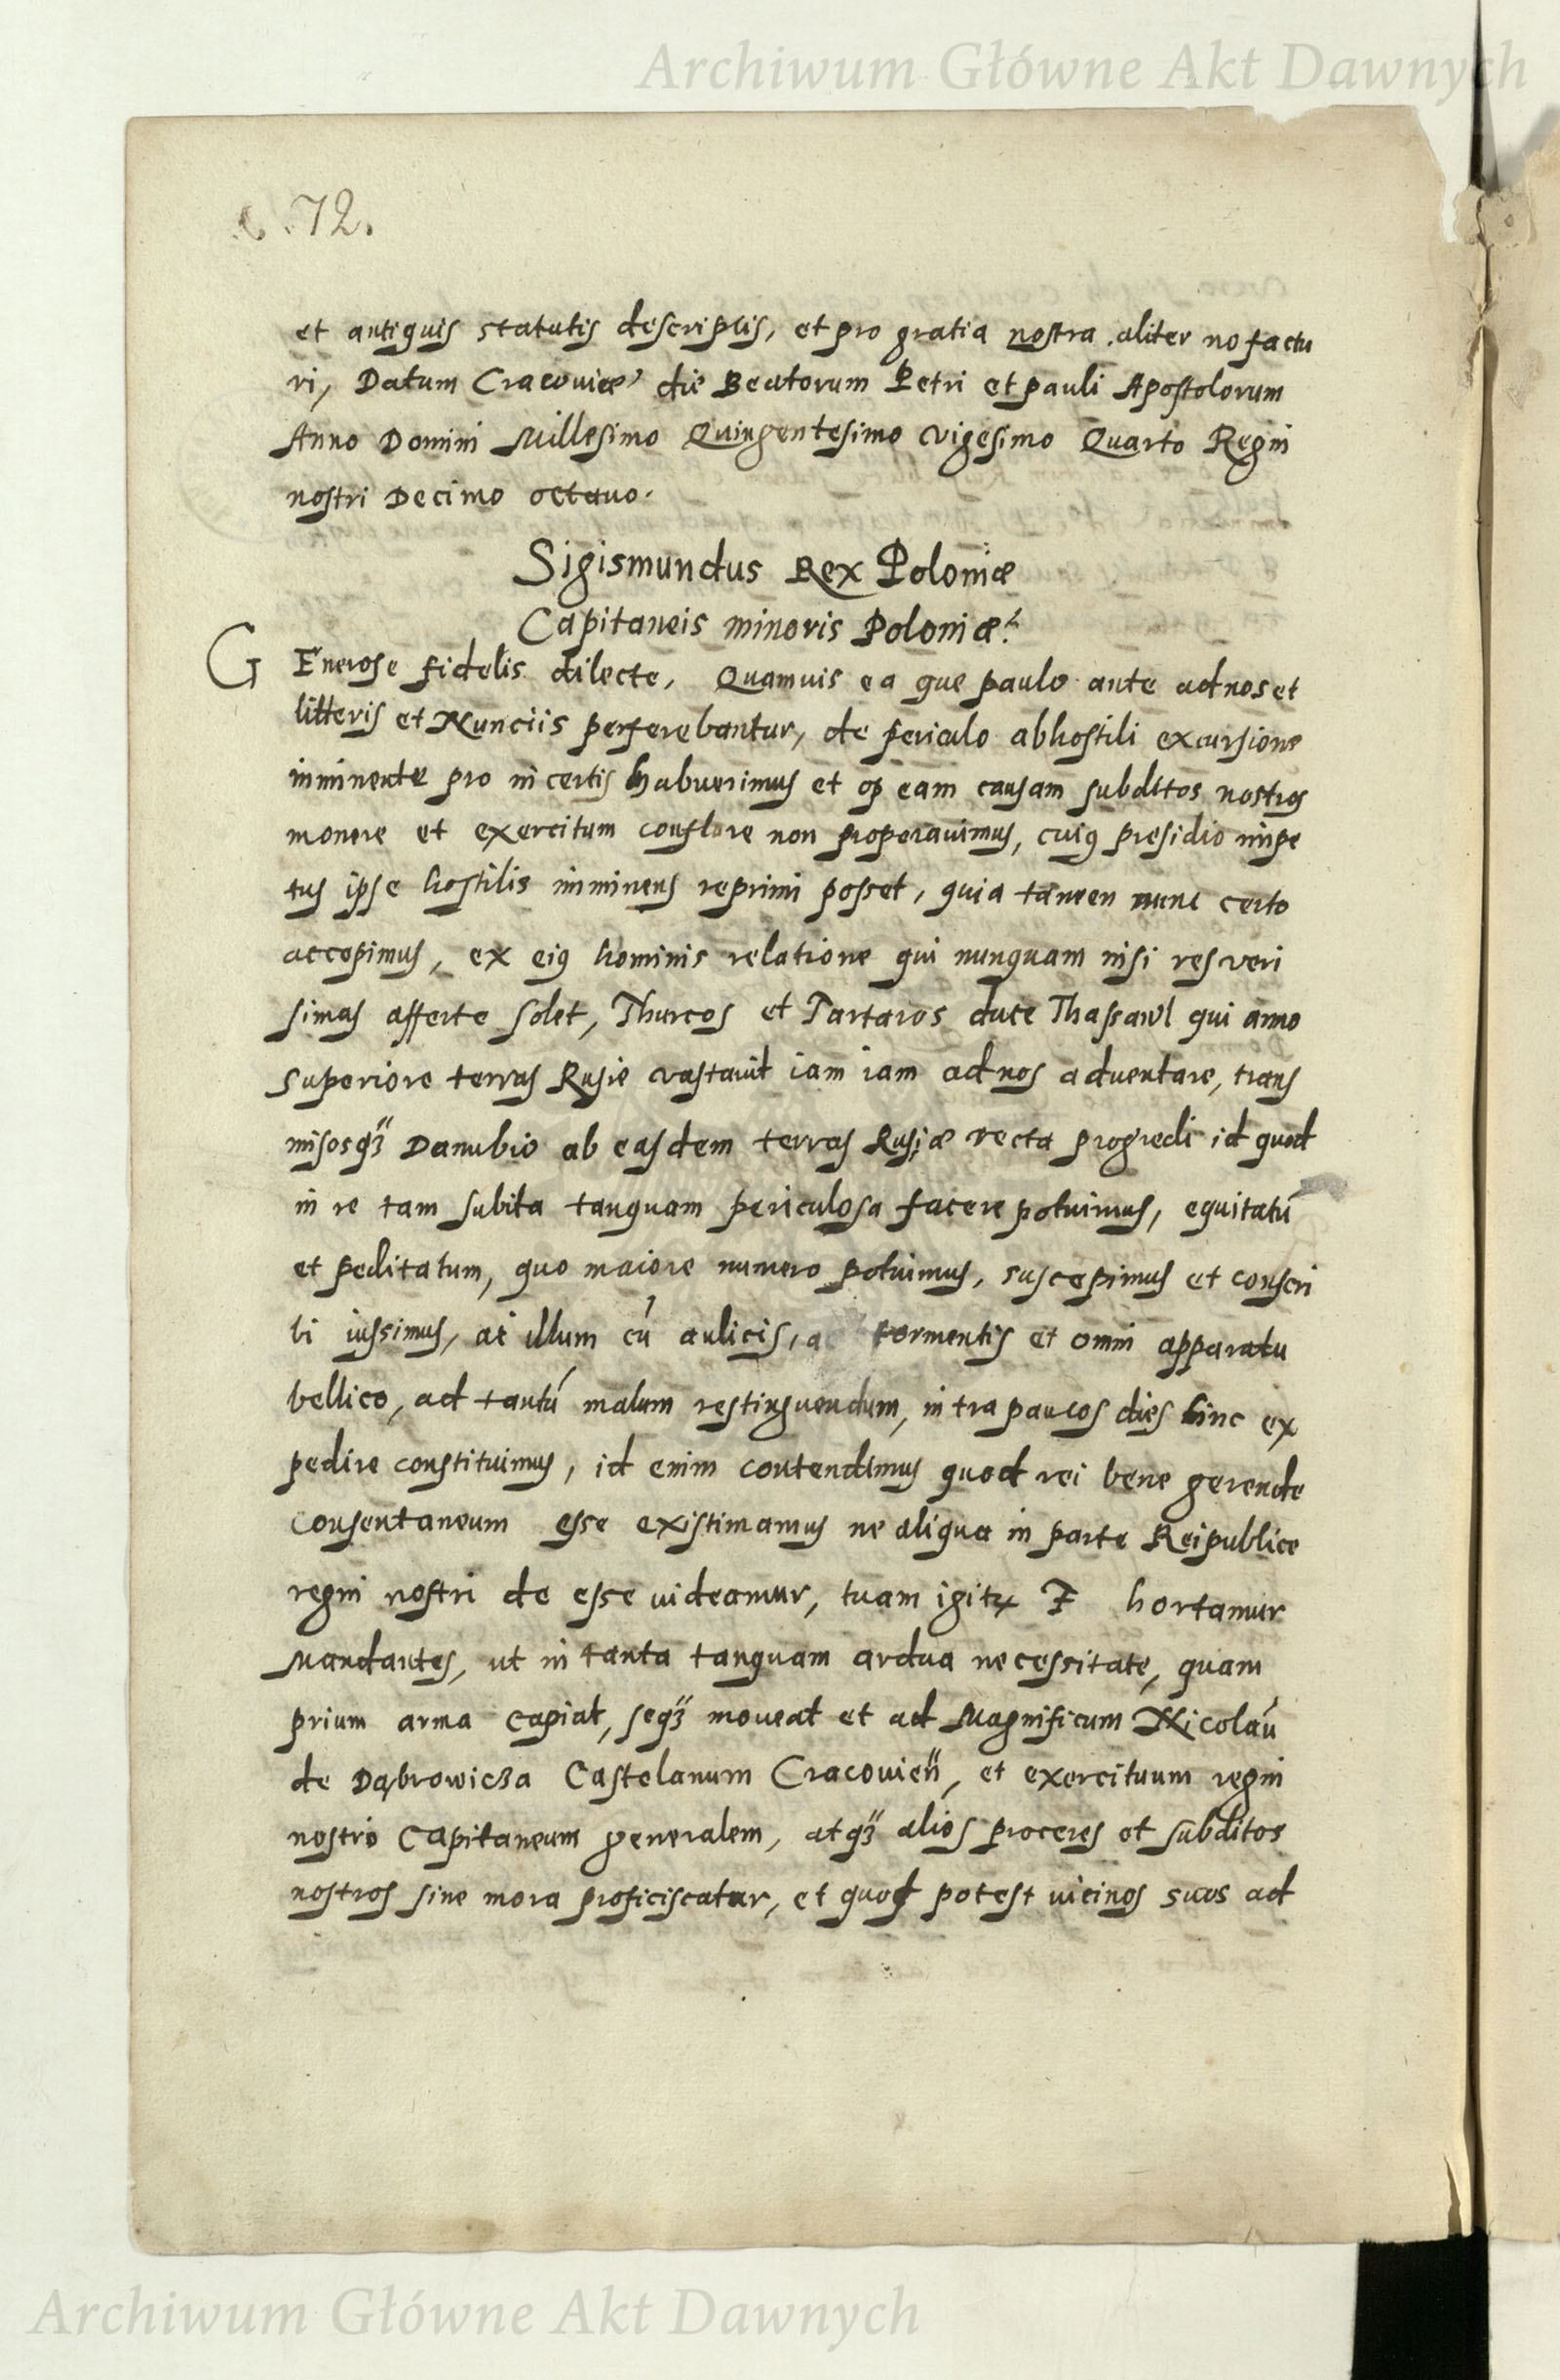 Archiwum Główne Akt Dawnych
72.
et antiquis statutis descriptis, et pro gratia nostra aliter no factu
ri, Datum Cracoviæ die Beatorum Petri et pauli Apostolorum
Anno Domini Millesimo Quingentesimo vigesimo Quarto Regni
nostri Decimo octauo.
Sigismundus Rex Poloniæ
Capitaneis minoris Poloniæ.
GEnerose fidelis dilecte, Quamuis ea que paulo ante ad nos et
litteris et Nunciis perferebantur, de periculo ab hostili excursione
inminente pro incertis habuerimus et ob eam causam subditos nostros
monere et exercitum conflare non properauimus, cuiꝯ presidio impe
tus ipse hostilis imminens reprimi posset, quia tamen nunc certo
accepimus, ex eiꝯ hominis relatione qui nunquam nisi res veri
simas afferte solet, Thurcos et Tartaros duce Thassawl qui anno
superiore terras Rusie vastauit iam iam ad nos aduentare, trans
misosqꝫ Danubio ab easdem terras Rusiæ recta progredi id quod
in re tam subita tanquam periculosa facere potuimus, equitatū
et peditatum, quo maiore numero potuimus, suscepimus et conscri
bi iussimus, ac illum cū aulicis, ac tormentis et omni apparatu
bellico, ad tantū malum restinguendum, intra paucos dies hinc ex
pedire constituimus, id enim contendimus quod rei bene gerende
consentaneum esse existimamus ne aliqua in parte Reipublice
regni nostri de esse uideamur, tuam igitur F hortamur
Mandantes, ut in tanta tanquam ardua necessitate, quam
prium arma capiat, seqꝫ moueat et ad Magnificum Nicolaū
de Dąbrowicza Castelanum Cracouieñ, et exercituum regni
nostro Capitaneum generalem, atqꝫ alios proceres et subditos
nostros sine mora proficiscatur, et quod potest uicinos suos ad
Archiwum Główne Akt Dawnych